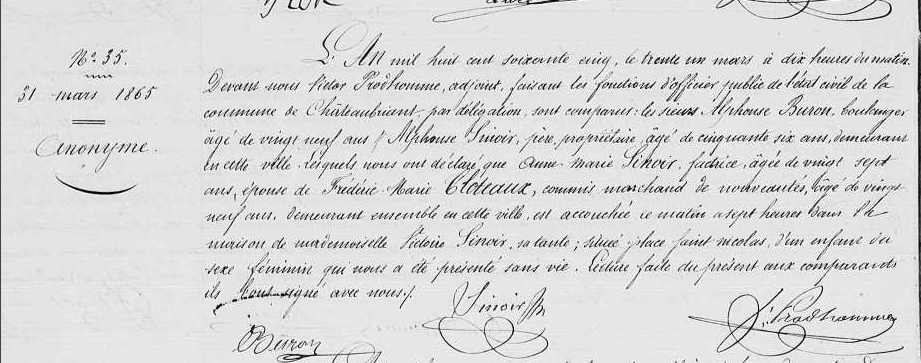 No. 35.
31 mars 1865
Anonyme.
L'An mil huit cent soixante cinq, le trente un mars à dix heures du matin
Devant nous Victor Prodhomme, adjoint, faisant les fonctions d'officier public de l'état civil de la
commune de Châteaubriant, par délégation, sont comparus: les sieurs Alphonse Buron, boulanger
âgé de vingt neuf ans & Alphonse Sinoir, père, propriétaire, âgé de cinquante six ans, demeurant
en cette ville, lesquels nous ont déclaré que Anne-Marie Sinoir, factrice, âgée de vingt sept
ans, épouse de Frédéric-Marie Cloteaux, commis marchand de nouveautés, âgé de vingt
neuf ans, demeurant ensemble en cette ville, est accouchée ce matin à sept heures dans la
maison de mademoiselle Victoire Sinoir, sa tante; située place saint nicolas, d'un enfant du
sexe féminin qui nous a été présenté sans vie. Lecture faite du présent aux comparants
ils ont signé avec nous.
Sinoir
Prodhomme
Buron